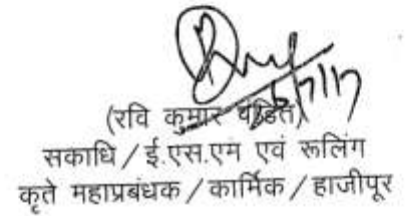 (रवि कुमार पंडित)
सकाधि / ई.एस.एम एवं रूलिंग
कृते महाप्रबंधक / कार्मिक / हाजीपुर